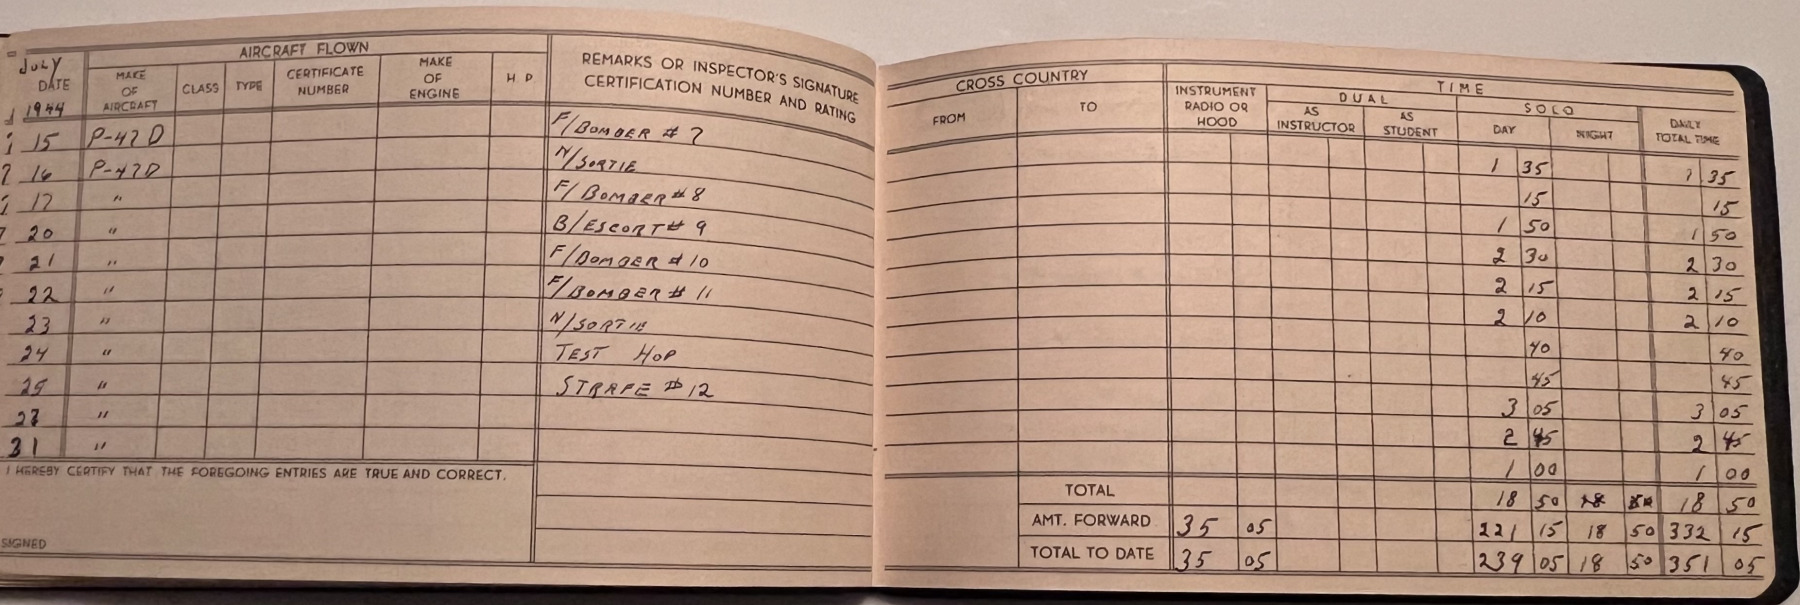 JULY
AIRCRAFT FLOWN
DATE MAKE OF AIRCRAFT CLASS TYPE CERTIFICATE NUMBER MAKE OF ENGINE H P REMARKS OR INSPECTOR'S SIGNATURE CERTIFICATION NUMBER AND RATING
1944
15 P-47D F/BOMBER # 7
16 P-47D N/SORTIE
17 " F/BOMBER # 8
20 " B/ESCORT # 9
21 " F/BOMBER # 10
22 " F/BOMBER # 11
23 " N/SORTIE
24 " TEST HOP
25 " STRAFE # 12
"
31 "
I HEREBY CERTIFY THAT THE FOREGOING ENTRIES ARE TRUE AND CORRECT.
SIGNED
CROSS COUNTRY TIME
FROM TO INSTRUMENT RADIO OR HOOD DUAL SOLO
AS INSTRUCTOR AS STUDENT DAY NIGHT DAILY TOTAL TIME
1 35 1 35
15 15
1 50 1 50
2 30 2 30
2 15 2 15
2 10 2 10
40 40
45 45
3 05 3 05
2 45 2 45
1 00 1 00
TOTAL 18 50 18 50 18 50
AMT. FORWARD 35 05 221 15 18 50 332 15
TOTAL TO DATE 35 05 239 05 18 50 351 05